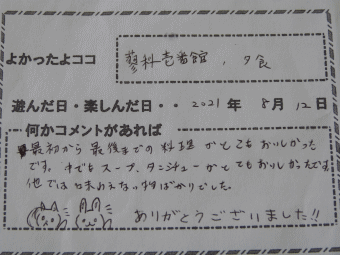 よかったよココ
蓼科壱番館、夕食
遊んだ日・楽しんだ日・・ 2021 年 8月 12日
何かコメントがあれば
最初から最後までの料理がとてもおいしかった
です。中でもスープ、タンシチューがとてもおいしかったです。
他では味わえない物ばかりでした。
ありがとうございました!!